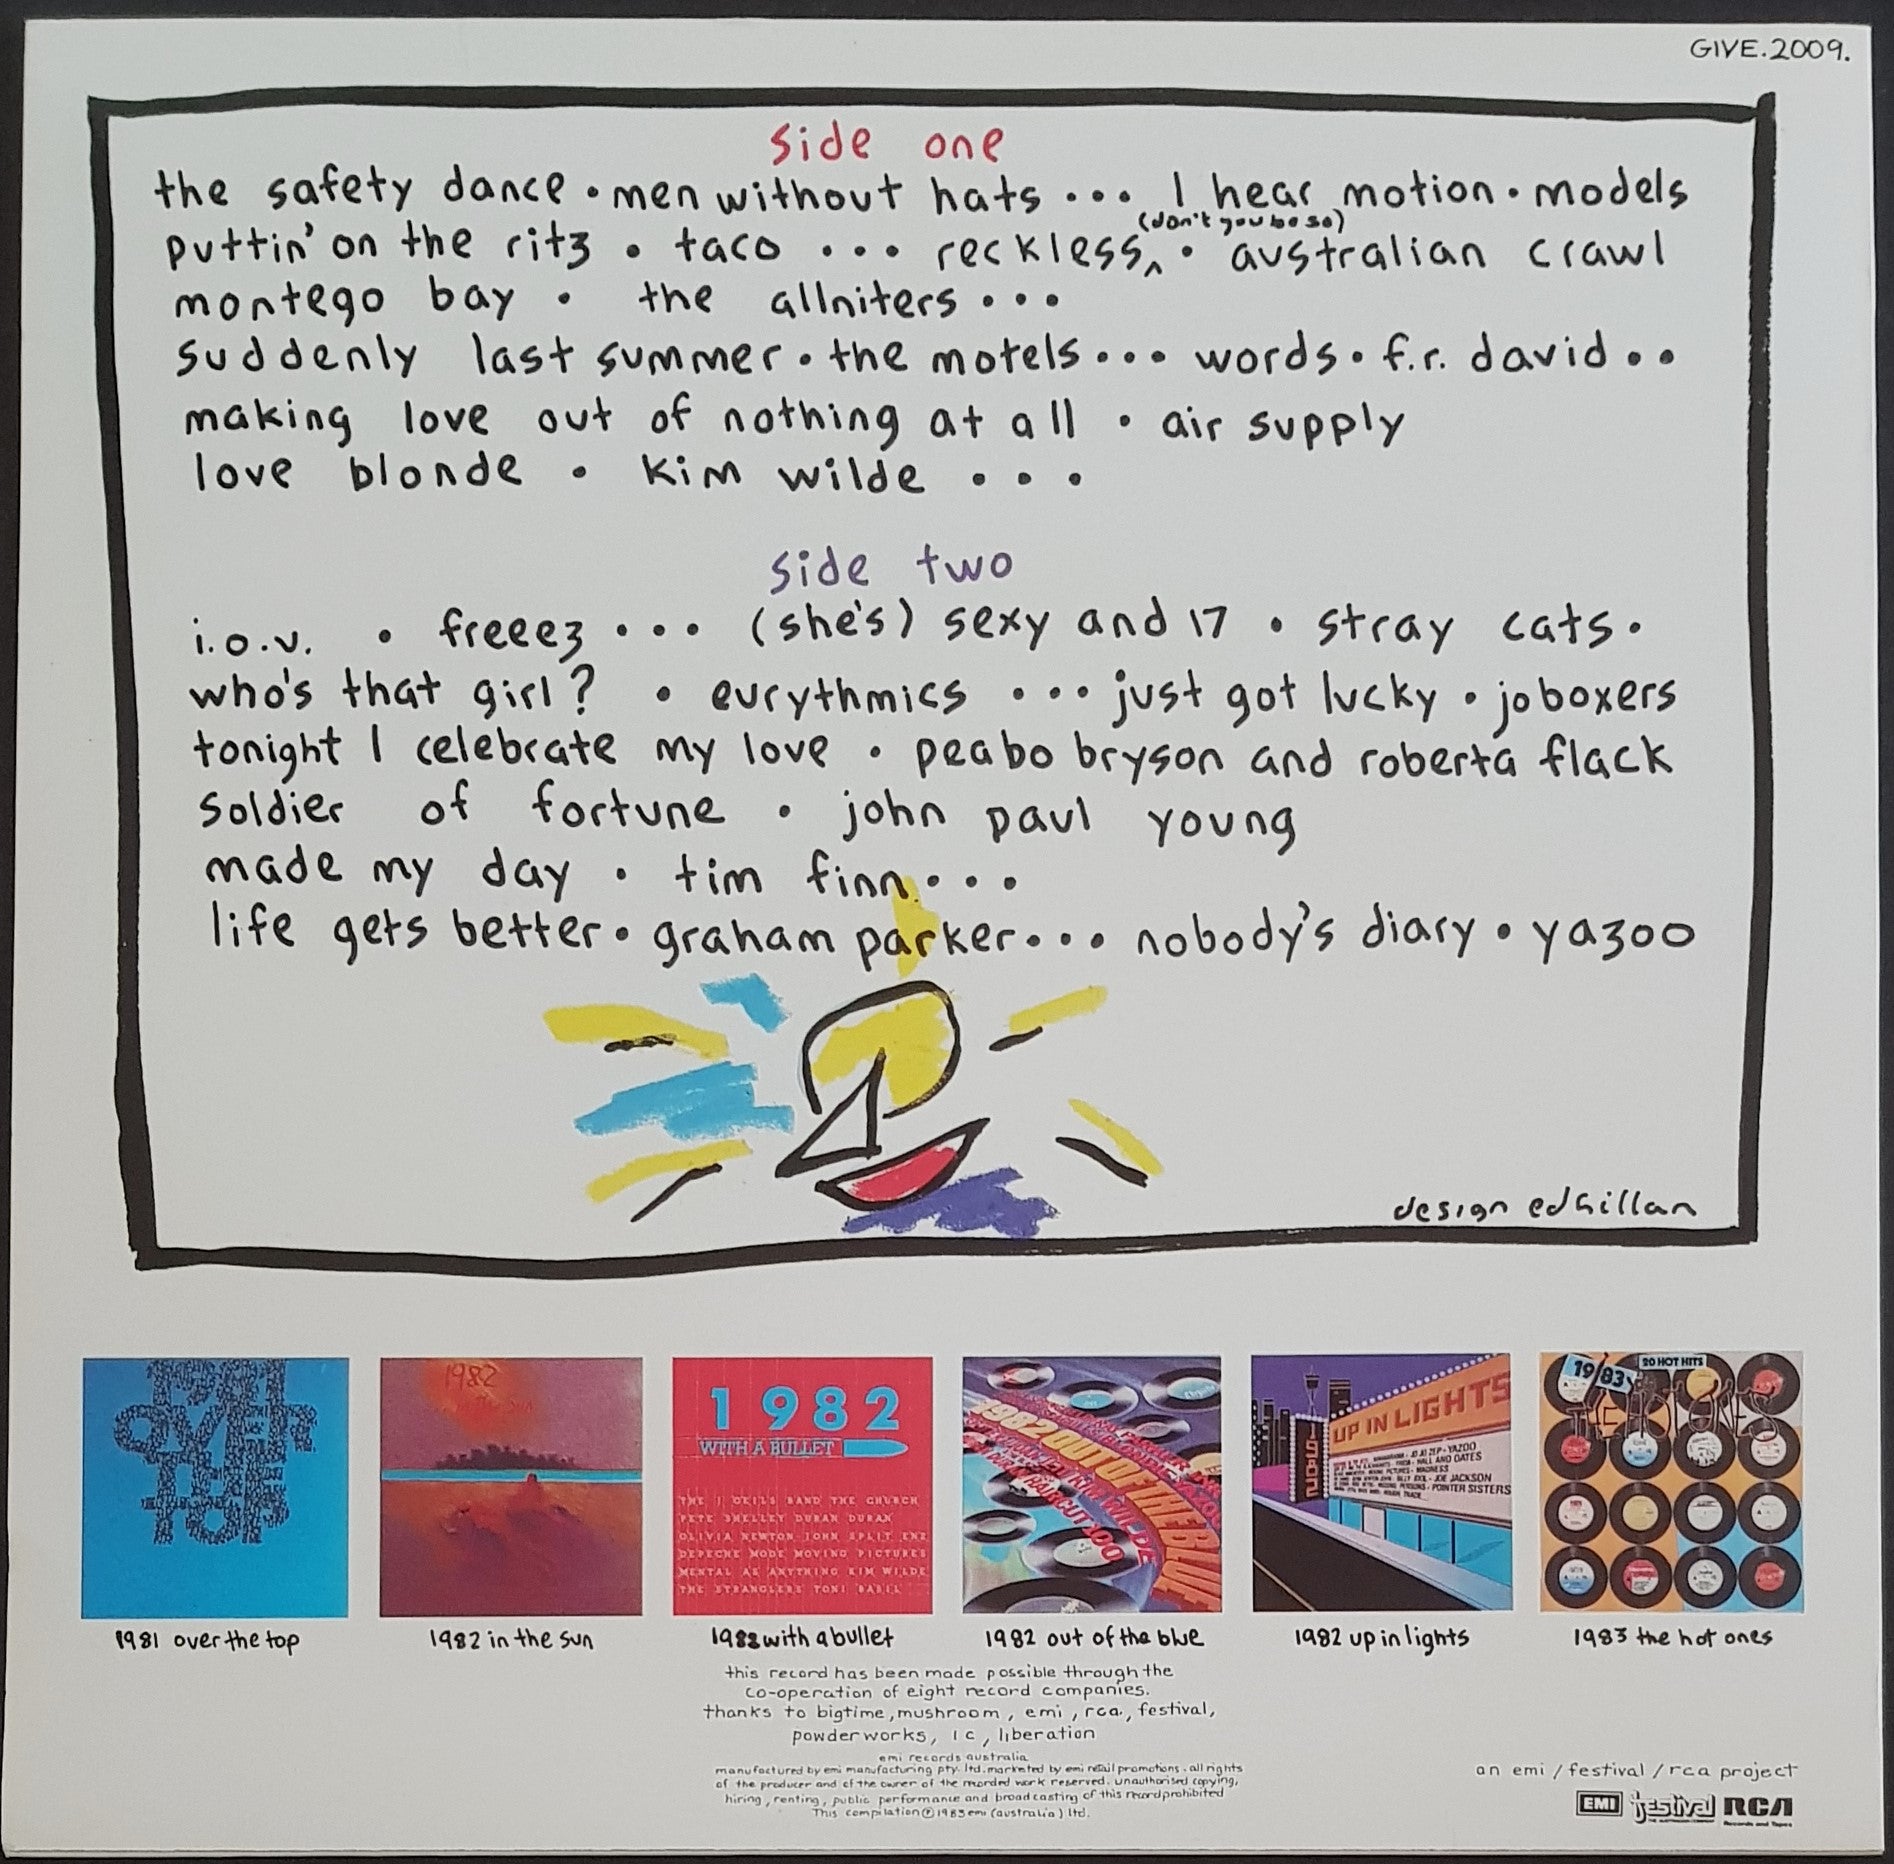 GIVE.2009.
side one
the safety dance • men without hats ... I hear motion • models
puttin' on the ritz • taco ... reckless (don't you be so) • australian crawl
montego bay • the allniters ...
suddenly last summer • the motels ... words • f.r. david ..
making love out of nothing at all • air supply
love blonde • kim wilde ...
side two
i.o.u. • freeez ... (she's) sexy and 17 • stray cats.
who's that girl? • eurythmics ... just got lucky • joboxers
tonight I celebrate my love • peabo bryson and roberta flack
soldier of fortune • john paul young
made my day • tim finn ...
life gets better • graham parker ... nobody's diary • yazoo
design ed hillan
1981 OVER THE TOP
1982 in the sun
1982
WITH A BULLET
THE J GEILS BAND THE CHURCH
PETE SHELLEY DURAN DURAN
OLIVIA NEWTON-JOHN SPLIT ENZ
DEPECHE MODE MOVING PICTURES
MENTAL AS ANYTHING KIM WILDE
THE STRANGLERS TONI BASIL
1982 OUT OF THE BLUE
KIM WILDE
HAIRCUT 100
1982
UP IN LIGHTS
JO JO ZEP - YAZOO
HALL AND OATES
MADNESS
BILLY IDOL - JOE JACKSON
POINTER SISTERS
ROUGH TRADE
1983
20 HOT HITS
THE HOT ONES
1981 over the top
1982 in the sun
1982 with a bullet
1982 out of the blue
1982 up in lights
1983 the hot ones
this record has been made possible through the
co-operation of eight record companies.
thanks to bigtime, mushroom, emi, rca, festival,
powderworks, ic, liberation
emi records australia
manufactured by emi manufacturing pty. ltd. marketed by emi retail promotions. all rights
of the producer and of the owner of the recorded work reserved. unauthorised copying,
hiring, renting, public performance and broadcasting of this record prohibited
This compilation ℗ 1983 emi (australia) ltd.
an emi / festival / rca project
EMI festival RCA
Records and Tapes